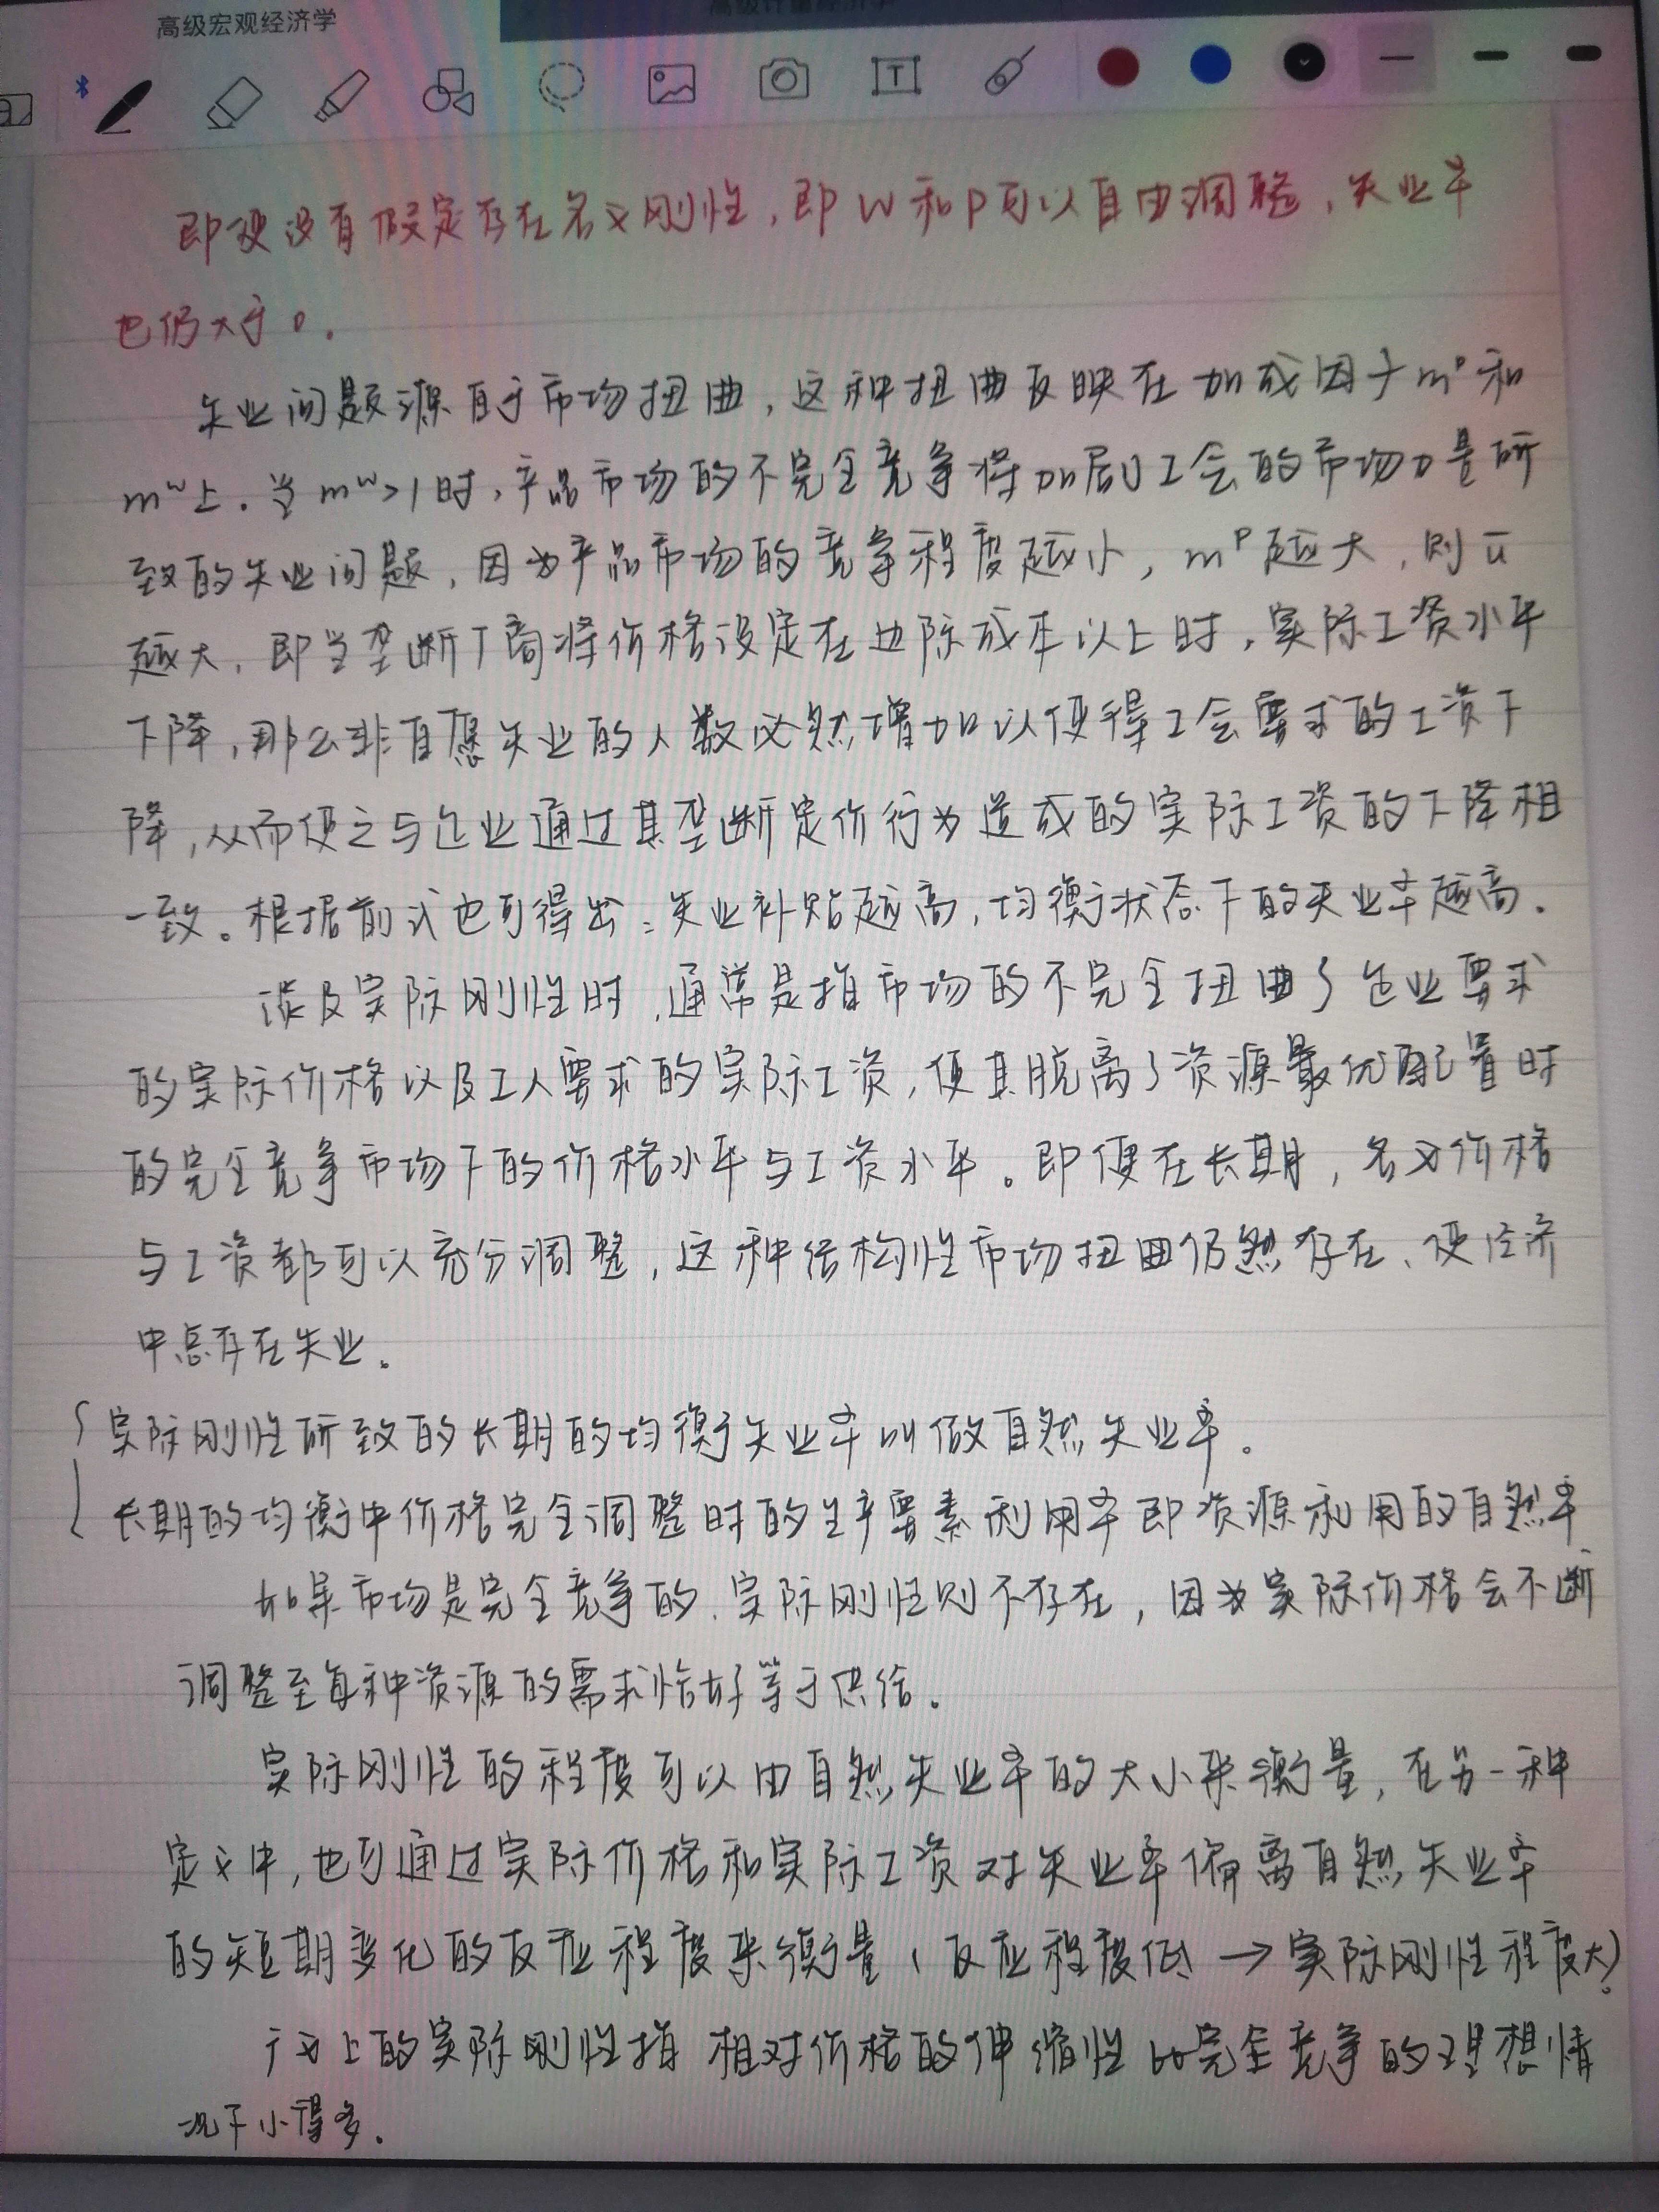 高级宏观经济学
高级计量经济学
T
即使没有假定存在名义刚性，即W和P可以自由调整，失业率
也仍大于0.
失业问题源自于市场扭曲，这种扭曲反映在加成因子mᵖ和
mʷ上.当mʷ>1时，产品市场的不完全竞争将加剧工会的市场力量所
致的失业问题，因为产品市场的竞争程度越小，mᵖ越大，则ū
越大，即当垄断厂商将价格设定在边际成本以上时，实际工资水平
下降，那么非自愿失业的人数必然增加以使得工会要求的工资下
降，从而使之与企业通过其垄断定价行为造成的实际工资的下降相
一致。根据前式也可得出：失业补贴越高，均衡状态下的失业率越高.
谈及实际刚性时，通常是指市场的不完全扭曲了企业要求
的实际价格以及工人要求的实际工资，使其脱离了资源最优配置时
的完全竞争市场下的价格水平与工资水平。即便在长期，名义价格
与工资都可以充分调整，这种结构性市场扭曲仍然存在、使经济
中总存在失业。
实际刚性所致的长期的均衡失业率叫做自然失业率。
长期的均衡中价格完全调整时的生产要素利用率即资源利用的自然率
如果市场是完全竞争的、实际刚性则不存在，因为实际价格会不断
调整至每种资源的需求恰好等于供给。
实际刚性的程度可以由自然失业率的大小来衡量，在另一种
定义中，也可通过实际价格和实际工资对失业率偏离自然失业率
的短期变化的反应程度来衡量（反应程度低→实际刚性程度大）。
广义上的实际刚性指 相对价格的伸缩性比完全竞争的理想情
况下小得多.